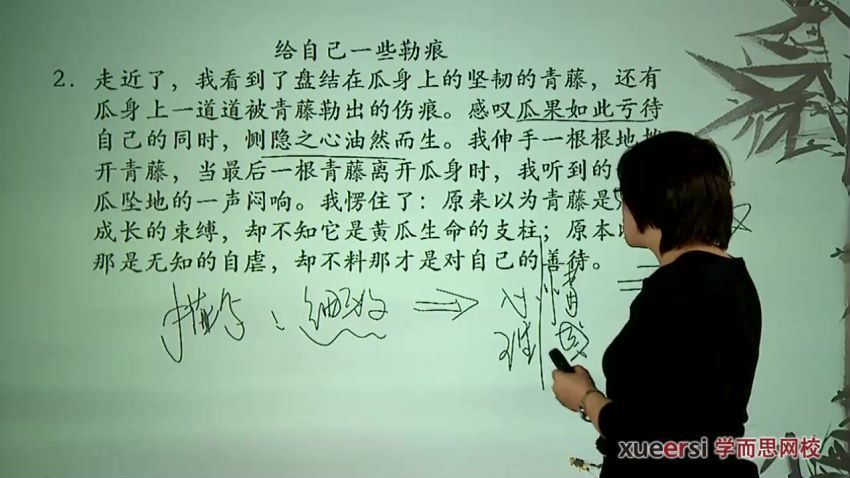 给自己一些勒痕
2. 走近了，我看到了盘结在瓜身上的坚韧的青藤，还有
瓜身上一道道被青藤勒出的伤痕。感叹瓜果如此亏待
自己的同时，恻隐之心油然而生。我伸手一根根地
开青藤，当最后一根青藤离开瓜身时，我听到的
瓜坠地的一声闷响。我愣住了：原来以为青藤是
成长的束缚，却不知它是黄瓜生命的支柱；原本
那是无知的自虐，却不料那才是对自己的善待。
描写：细致 心情
理 感
xueersi 学而思网校